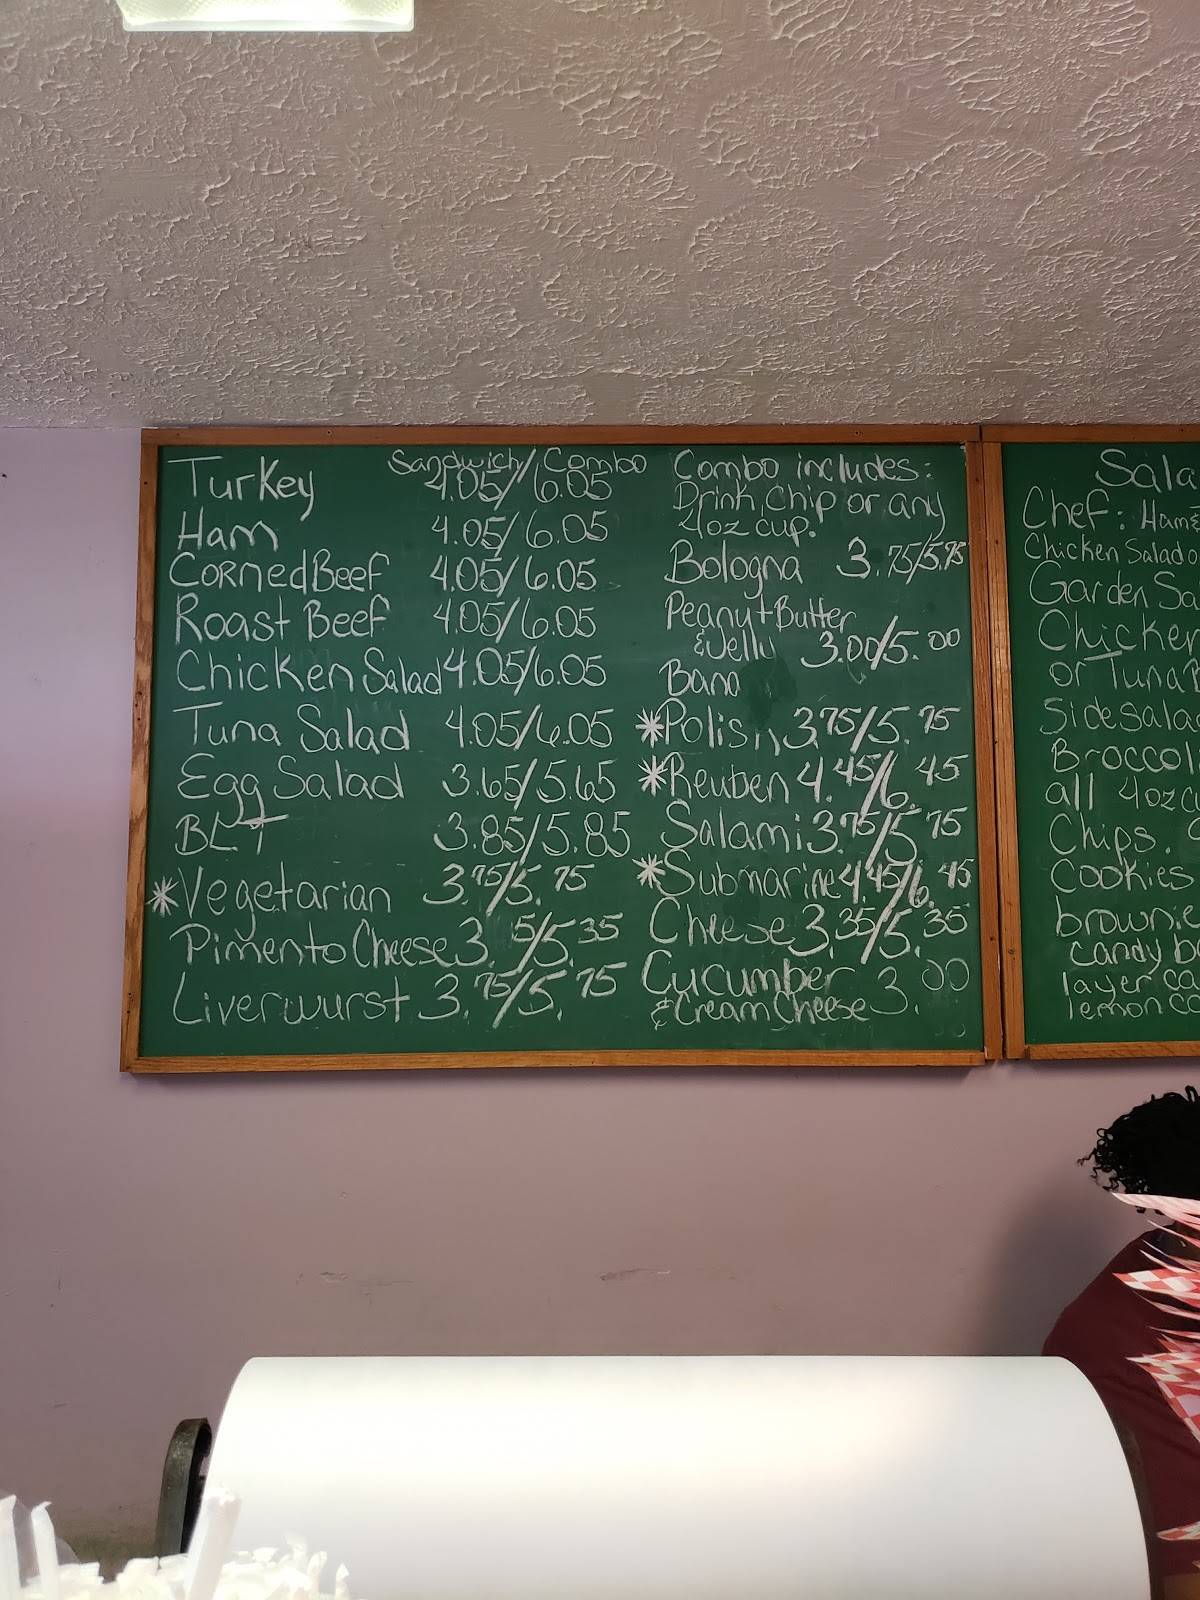 Sandwich/Combo
Turkey 4.05/6.05
Ham 4.05/6.05
Corned Beef 4.05/6.05
Roast Beef 4.05/6.05
Chicken Salad 4.05/6.05
Tuna Salad 4.05/6.05
Egg Salad 3.65/5.65
BLT 3.85/5.85
*Vegetarian 3.75/5.75
Pimento Cheese 3. 5/5.35
Liverwurst 3.75/5.75
Combo includes:
Drink, chip or any
4oz cup.
Bologna 3.75/5.75
Peanut Butter
& Jelly 3.00/5.00
Bana
*Polish 3.75/5.75
*Reuben 4.45/6.45
Salami 3.75/5.75
*Submarine 4.45/6.45
Cheese 3.35/5.35
Cucumber
& Cream Cheese 3.00
Sala
Chef: Ham &
Chicken Salad o
Garden Sa
Chicken
or Tuna
Side Sala
Broccoli
all 4oz c
Chips.
Cookies
brownie
candy b
layer ca
lemon co